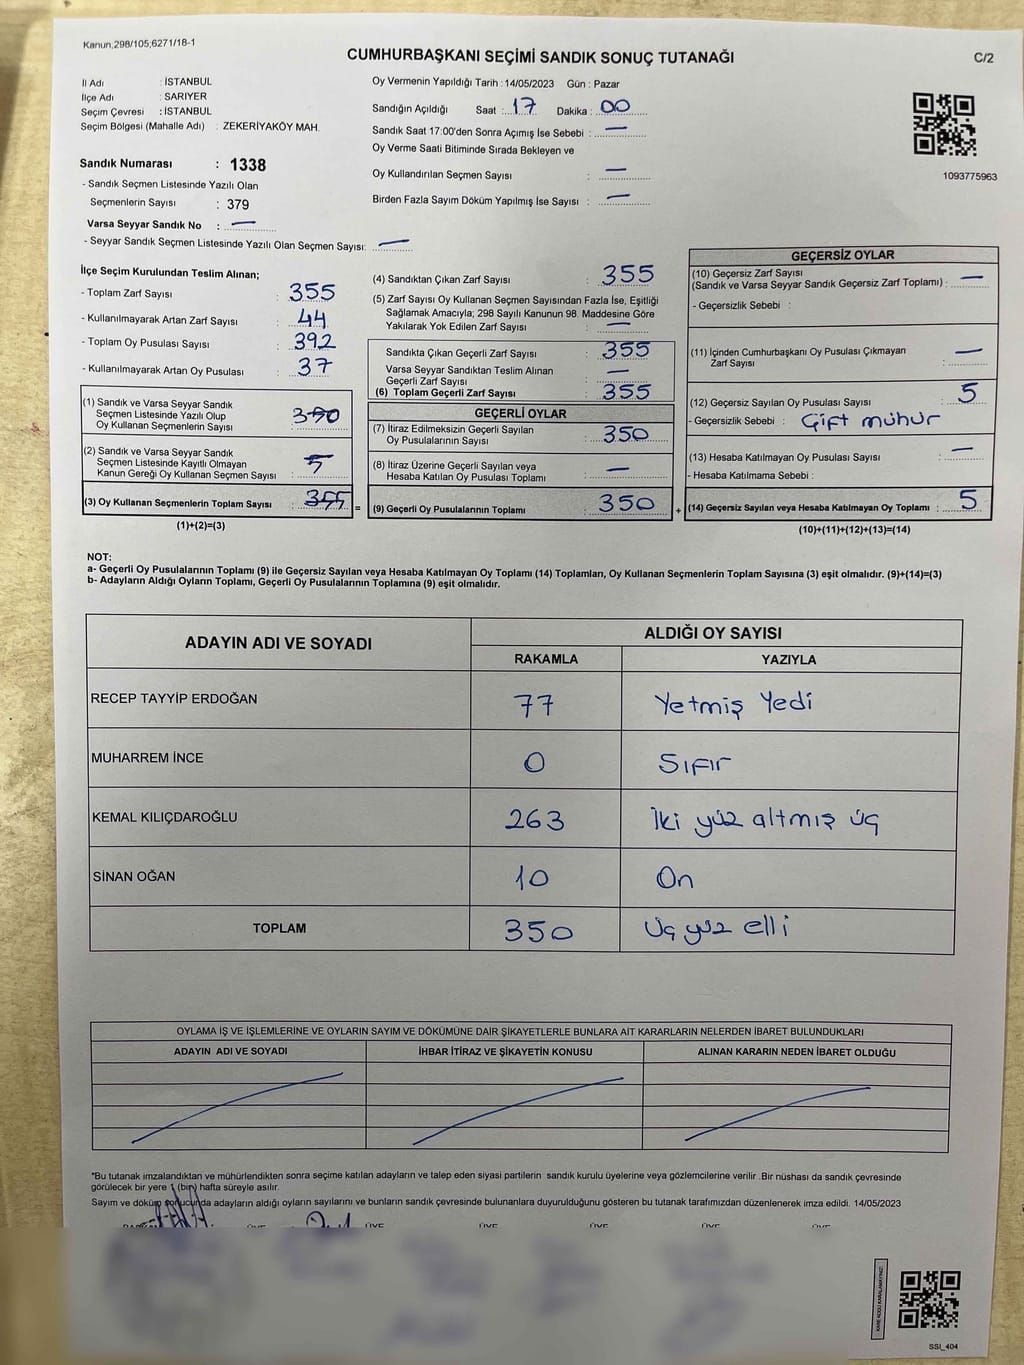 Kanun,298/105,6271/18-1
CUMHURBAŞKANI SEÇİMİ SANDIK SONUÇ TUTANAĞI
C/2
İl Adı : İSTANBUL
İlçe Adı : SARIYER
Seçim Çevresi : İSTANBUL
Seçim Bölgesi (Mahalle Adı) : ZEKERİYAKÖY MAH.
Oy Vermenin Yapıldığı Tarih : 14/05/2023 Gün : Pazar
Sandığın Açıldığı Saat : 17 Dakika : 00
Sandık Saat 17:00'den Sonra Açımış İse Sebebi : —
Oy Verme Saati Bitiminde Sırada Bekleyen ve
Oy Kullandırılan Seçmen Sayısı : —
Birden Fazla Sayım Döküm Yapılmış İse Sayısı : —
1093775963
Sandık Numarası : 1338
- Sandık Seçmen Listesinde Yazılı Olan
Seçmenlerin Sayısı : 379
Varsa Seyyar Sandık No : —
- Seyyar Sandık Seçmen Listesinde Yazılı Olan Seçmen Sayısı: —
İlçe Seçim Kurulundan Teslim Alınan;
- Toplam Zarf Sayısı : 355
- Kullanılmayarak Artan Zarf Sayısı : 44
- Toplam Oy Pusulası Sayısı : 392
- Kullanılmayarak Artan Oy Pusulası : 37
(1) Sandık ve Varsa Seyyar Sandık
Seçmen Listesinde Yazılı Olup
Oy Kullanan Seçmenlerin Sayısı : 350
(2) Sandık ve Varsa Seyyar Sandık
Seçmen Listesinde Kayıtlı Olmayan
Kanun Gereği Oy Kullanan Seçmen Sayısı : 5
(3) Oy Kullanan Seçmenlerin Toplam Sayısı : 355 =
(1)+(2)=(3)
(4) Sandıktan Çıkan Zarf Sayısı : 355
(5) Zarf Sayısı Oy Kullanan Seçmen Sayısından Fazla İse, Eşitliği
Sağlamak Amacıyla; 298 Sayılı Kanunun 98. Maddesine Göre
Yakılarak Yok Edilen Zarf Sayısı : —
Sandıkta Çıkan Geçerli Zarf Sayısı : 355
Varsa Seyyar Sandıktan Teslim Alınan
Geçerli Zarf Sayısı : —
(6) Toplam Geçerli Zarf Sayısı : 355
GEÇERLİ OYLAR
(7) İtiraz Edilmeksizin Geçerli Sayılan
Oy Pusulalarının Sayısı : 350
(8) İtiraz Üzerine Geçerli Sayılan veya
Hesaba Katılan Oy Pusulası Toplamı : —
(9) Geçerli Oy Pusulalarının Toplamı : 350 +
GEÇERSİZ OYLAR
(10) Geçersiz Zarf Sayısı
(Sandık ve Varsa Seyyar Sandık Geçersiz Zarf Toplamı) : —
- Geçersizlik Sebebi :
(11) İçinden Cumhurbaşkanı Oy Pusulası Çıkmayan
Zarf Sayısı : —
(12) Geçersiz Sayılan Oy Pusulası Sayısı : 5
- Geçersizlik Sebebi : Çift mühür
(13) Hesaba Katılmayan Oy Pusulası Sayısı : —
- Hesaba Katılmama Sebebi :
(14) Geçersiz Sayılan veya Hesaba Katılmayan Oy Toplamı : 5
(10)+(11)+(12)+(13)=(14)
NOT:
a- Geçerli Oy Pusulalarının Toplamı (9) ile Geçersiz Sayılan veya Hesaba Katılmayan Oy Toplamı (14) Toplamları, Oy Kullanan Seçmenlerin Toplam Sayısına (3) eşit olmalıdır. (9)+(14)=(3)
b- Adayların Aldığı Oyların Toplamı, Geçerli Oy Pusulalarının Toplamına (9) eşit olmalıdır.
ADAYIN ADI VE SOYADI
ALDIĞI OY SAYISI
RAKAMLA YAZIYLA
RECEP TAYYİP ERDOĞAN 77 Yetmiş Yedi
MUHARREM İNCE 0 Sıfır
KEMAL KILIÇDAROĞLU 263 İki yüz altmış üç
SİNAN OĞAN 10 On
TOPLAM 350 Üç yüz elli
OYLAMA İŞ VE İŞLEMLERİNE VE OYLARIN SAYIM VE DÖKÜMÜNE DAİR ŞİKAYETLERLE BUNLARA AİT KARARLARIN NELERDEN İBARET BULUNDUKLARI
ADAYIN ADI VE SOYADI İHBAR İTİRAZ VE ŞİKAYETİN KONUSU ALINAN KARARIN NEDEN İBARET OLDUĞU
*Bu tutanak imzalandıktan ve mühürlendikten sonra seçime katılan adayların ve talep eden siyasi partilerin sandık kurulu üyelerine veya gözlemcilerine verilir .Bir nüshası da sandık çevresinde
görülecek bir yere 1 (bir) hafta süreyle asılır.
Sayım ve döküm sonucunda adayların aldığı oyların sayılarını ve bunların sandık çevresinde bulunanlara duyurulduğunu gösteren bu tutanak tarafımızdan düzenlenerek imza edildi. 14/05/2023
ÜYE ÜYE ÜYE ÜYE ÜYE ÜYE
KARE KODU KARALAMAYINIZ!
SSI_404